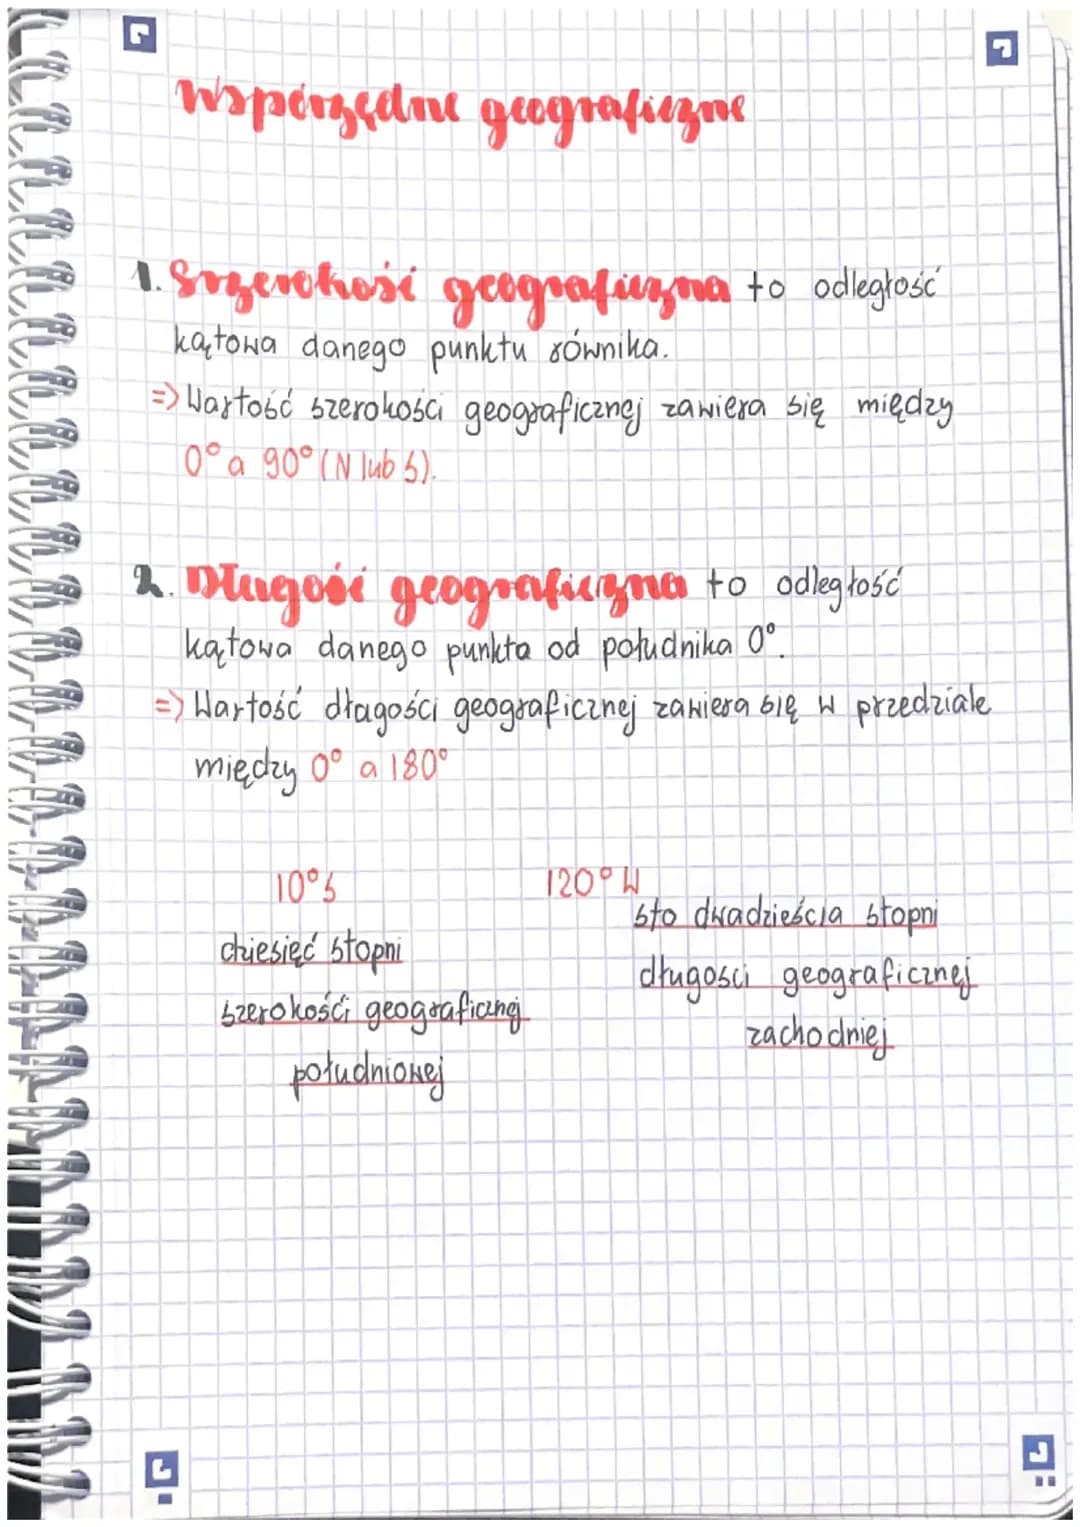 Współrzędne geograficzne
1. Szerokość geograficzna to odległość
kątowa danego punktu równika.
=> Wartość szerokości geograficznej zawiera się między
0° a 90° (N lub S).
2. Długość geograficzna to odległość
kątowa danego punkta od południka 0°.
=> Wartość dłagości geograficznej zawiera się w przedziale
między 0° a 180°
10°S
dziesięć stopni
szerokości geograficznej
południowej
120° W
sto dwadzieścia stopni
długosci geograficznej
zachodniej